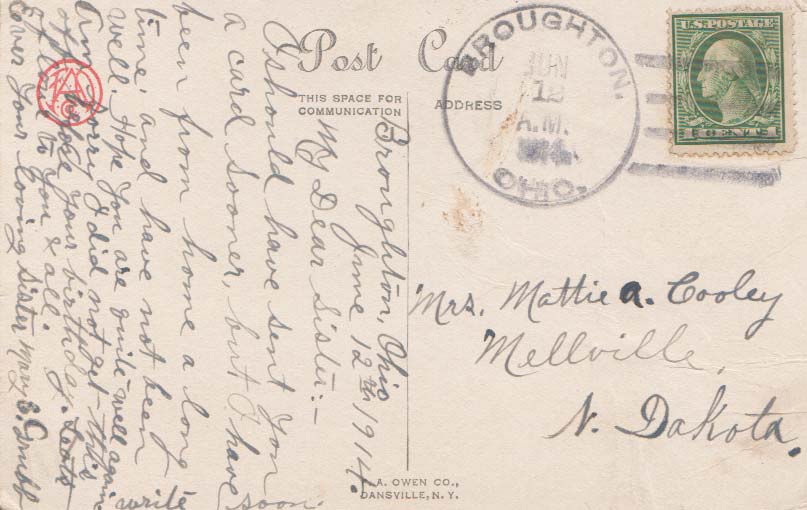 Post Card
THIS SPACE FOR
COMMUNICATION
ADDRESS
BROUGHTON,
JUN
12
A.M.
OHIO.
U.S. POSTAGE
1 CENT 1
Broughton, Ohio
June 12th 1914.
My Dear Sister:-
I should have sent you
a card sooner, but I have
been from home a long
time, and have not been
well. Hope you are quite well again
Am sorry I did not get this
off before your birthday.
to you & all.
Ever your loving sister Mary E.
write
soon.
Mrs. Mattie A. Cooley
Mellville,
N. Dakota.
F.A. OWEN CO.,
DANSVILLE, N.Y.